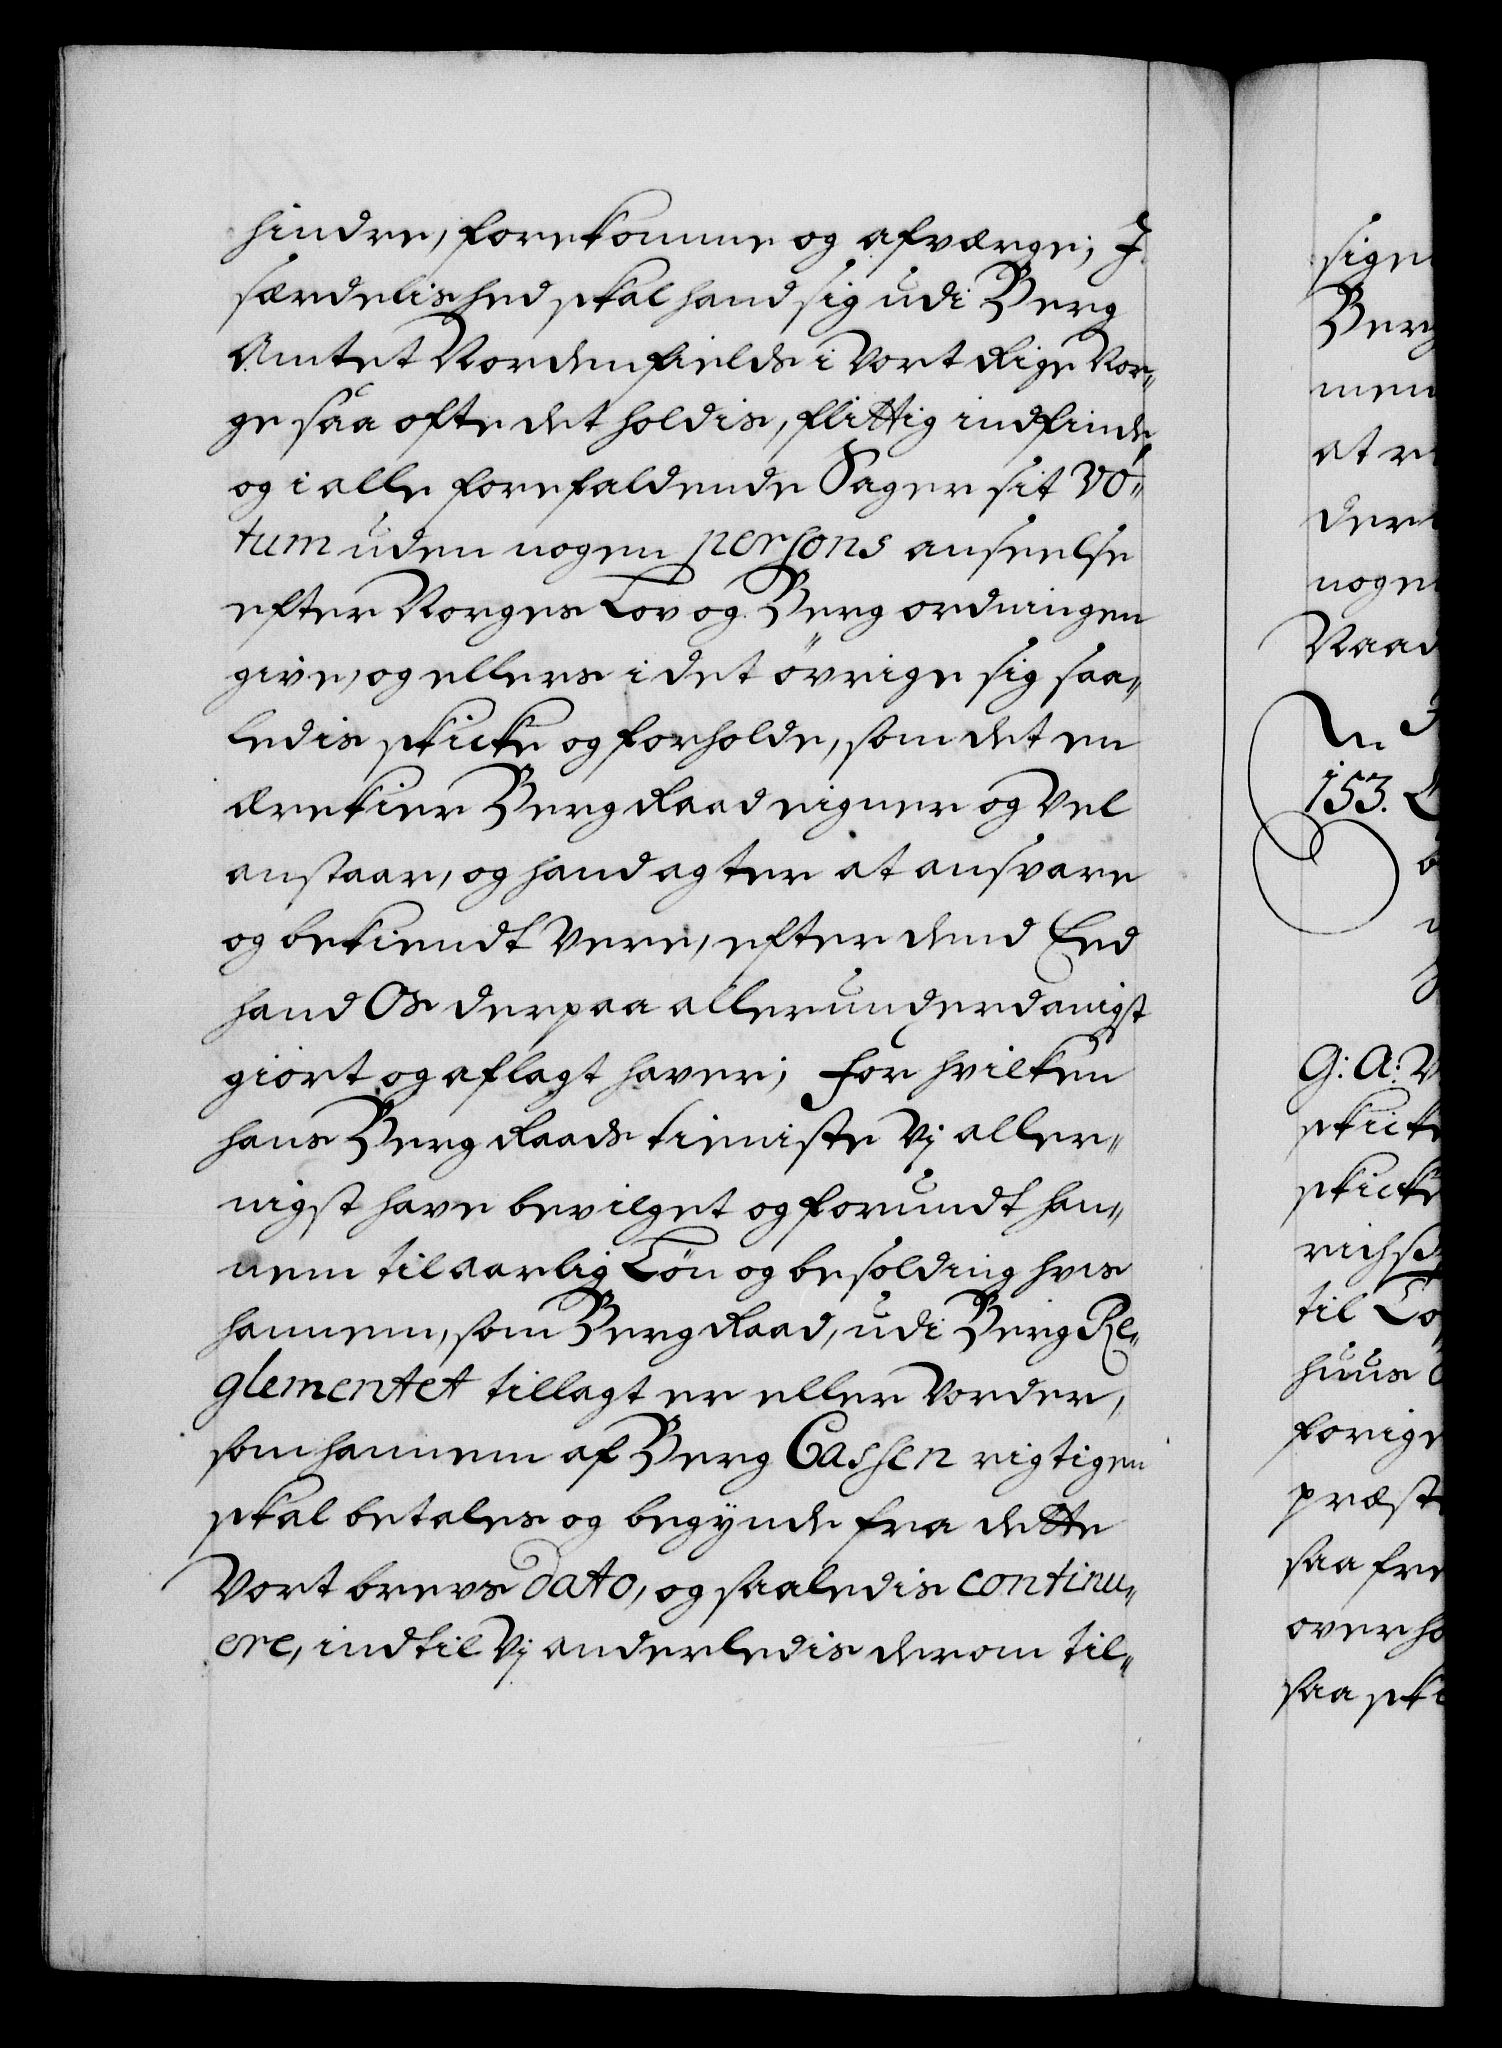 hindre, forekomme og afværge; I
særdelished skal hand sig udi Berg
Amtet Nordenfields i Vort Rige Nor„
ge saa ofte det holdis, flittig indfinde,
og i alle forefaldende Sager sit Vo„
tum uden nogen persons anseelse
efter Norges Lov og Berg ordningen
give, og ellers i det övrige sig saa„
ledis skicke og forholde, som det en
ærekier Berg Raad eigner og vel
anstaar, og hand agter at ansvare
og bekiendt være, efter dend Eed
hand Os derpaa allerunderdanigst
giort og aflagt haver; for hvilken
hans Berg Raads tieniste Vj aller„
nigst have bevilget og forundt han„
nem til aarlig Lön og besolding hvis
hannem, som Berg Raad, udi Berg Re„
glementet tillagt er eller vorder,
som hannem af Berg Cassen rigtigen
skal betales og begynde fra dette
Vort brevs dato, og saaledis continu„
ere, indtil Vj anderledis derom til„
sige
Berg
men
at
der
noge
Raad
153.
G: A: V
skicke
skicke
richs
til
huus
forige
præst
saa fre
over ho
saa ski